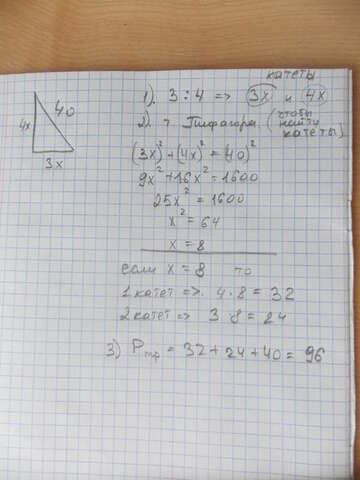 катеты
1). 3 : 4 => 3x и 4x
2). т Пифагора (чтобы найти катеты)
40
4x
3x
(3x)² + (4x)² = (40)²
9x² + 16x² = 1600
25x² = 1600
x² = 64
x = 8
если x = 8 то
1 катет => 4 · 8 = 32
2 катет => 3 · 8 = 24
3) Pтр = 32 + 24 + 40 = 96